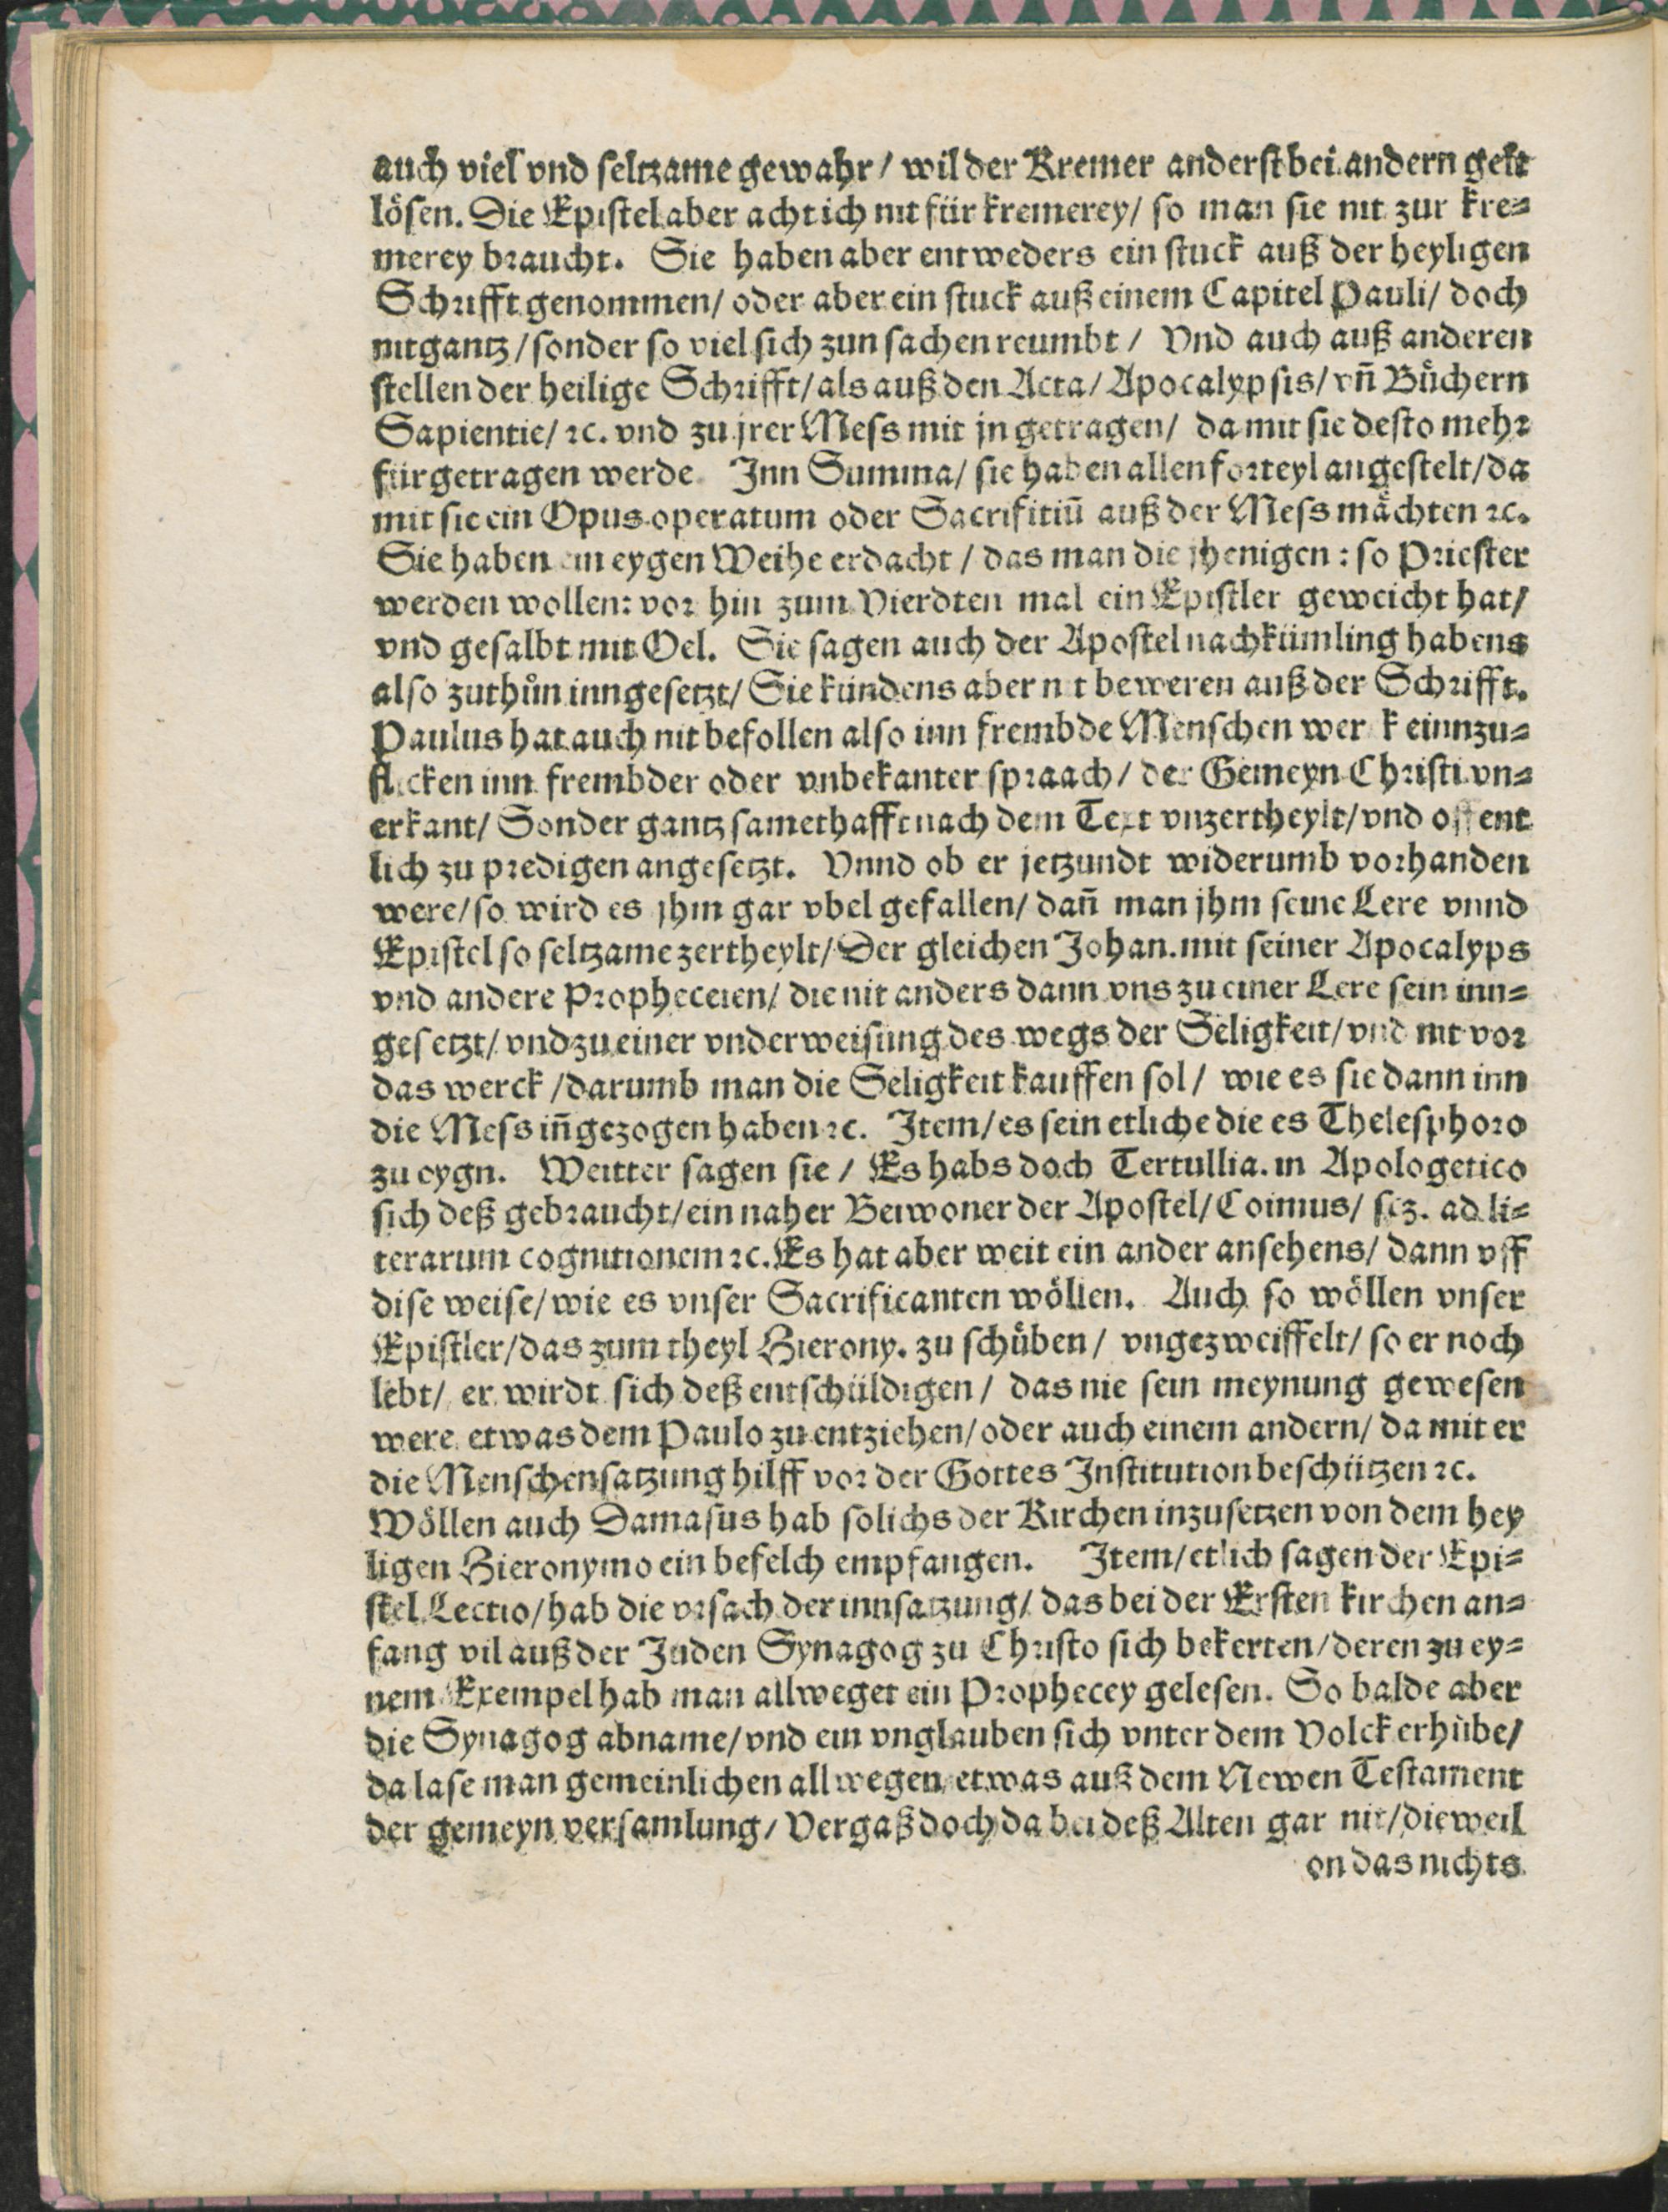 auch viel vnd seltzame gewahr / wil der Kremer anderst bei andern gelt
lösen. Die Epistel aber acht ich nit für kremerey / so man sie nit zur kre⸗
merey braucht. Sie haben aber entweders ein stuck auß der heyligen
Schrifft genommen / oder aber ein stuck auß einem Capitel Pauli / doch
nit gantz / sonder so viel sich zun sachen reumbt / Vnd auch auß anderen
stellen der heilige Schrifft / als auß den Acta / Apocalypsis / vn̄ Bůchern
Sapientie / ꝛc. vnd zu jrer Mess mit jn getragen / da mit sie desto mehr
fürgetragen werde. Inn Summa / sie haben allen forteyl angestelt / da
mit sie ein Opus operatum oder Sacrifitiū auß der Mess mächten ꝛc.
Sie haben ein eygen Weihe erdacht / das man die jhenigen : so Priester
werden wollen : vor hin zum Vierdten mal ein Epistler geweicht hat /
vnd gesalbt mit Oel. Sie sagen auch der Apostel nachkümling habens
also zuthůn inngesetzt / Sie kündens aber nit beweren auß der Schrifft.
Paulus hat auch nit befollen also inn frembde Menschen werk einnzu⸗
flicken inn frembder oder vnbekanter spraach / der Gemeyn Christi vn⸗
erkant / Sonder gantz samethafft nach dem Text vnzertheylt / vnd offent
lich zu predigen angesetzt. Vnnd ob er jetzundt widerumb vorhanden
were / so wird es jhm gar vbel gefallen / dan̄ man jhm seine Lere vnnd
Epistel so seltzame zertheylt / Der gleichen Johan. mit seiner Apocalyps
vnd andere Propheceien / die nit anders dann vns zu einer Lere sein inn⸗
gesetzt / vnd zu einer vnderweisung des wegs der Seligkeit / vnd nit vor
das werck / darumb man die Seligkeit kauffen sol / wie es sie dann inn
die Mess in̄gezogen haben ꝛc. Item / es sein etliche die es Thelesphoro
zu eygn. Weitter sagen sie / Es habs doch Tertullia. in Apologetico
sich deß gebraucht / ein naher Beiwoner der Apostel / Coimus / scz. ad li⸗
terarum cognitionem ꝛc. Es hat aber weit ein ander ansehens / dann vff
dise weise / wie es vnser Sacrificanten wöllen. Auch so wöllen vnser
Epistler / das zum theyl Hierony. zu schůben / vngezweiffelt / so er noch
lebt / er wirdt sich deß entschüldigen / das nie sein meynung gewesen
were etwas dem Paulo zu entziehen / oder auch einem andern / da mit er
die Menschensatzung hilff vor der Gottes Institution beschützen ꝛc.
Wöllen auch Damasus hab solichs der Kirchen inzusetzen von dem hey
ligen Hieronymo ein befelch empfangen. Item / etlich sagen der Epi⸗
stel Lectio / hab die vrsach der innsatzung / das bei der Ersten kirchen an⸗
fang vil auß der Juden Synagog zu Christo sich bekerten / deren zu ey⸗
nem Exempel hab man allweget ein Prophecey gelesen. So balde aber
die Synagog abname / vnd ein vnglauben sich vnter dem Volck erhübe /
da lase man gemeinlichen all wegen etwas auß dem Newen Testament
der gemeyn versamlung / Vergaß doch da bei deß Alten gar nit / dieweil
on das nichts